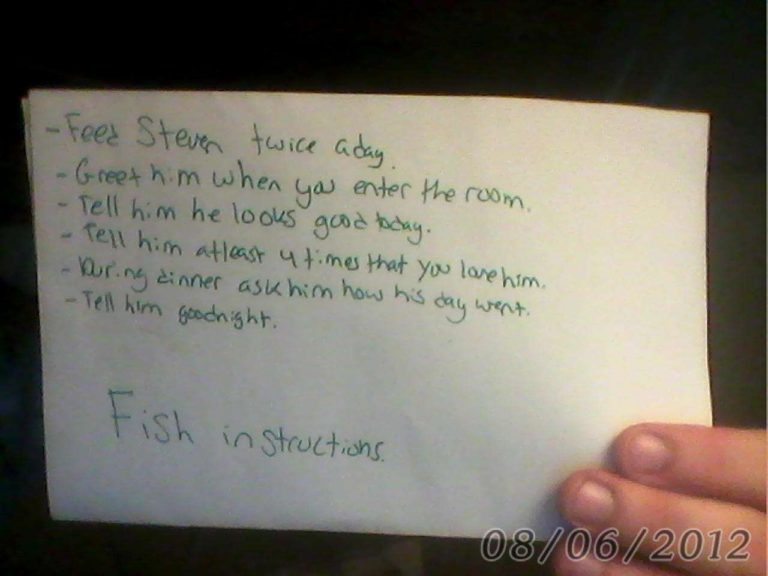 - Feed Steven twice a day.
- Greet him when you enter the room.
- Tell him he looks good today.
- Tell him atleast 4 times that you love him.
- During dinner ask him how his day went.
- Tell him goodnight.
Fish instructions.
08/06/2012